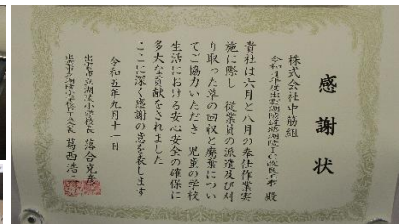 感謝状
株式会社中筋組
殿
貴社は六月と八月の奉仕作業実
施に際し 従業員の派遣及び刈
り取った草の回収と廃棄につい
てご協力いただき 児童の学校
生活における安心安全の確保に
多大な貢献をされました
ここに深く感謝の意を表します
令和五年九月十一日
出雲市立湖陵小学校長 落合克彦
葛西浩二